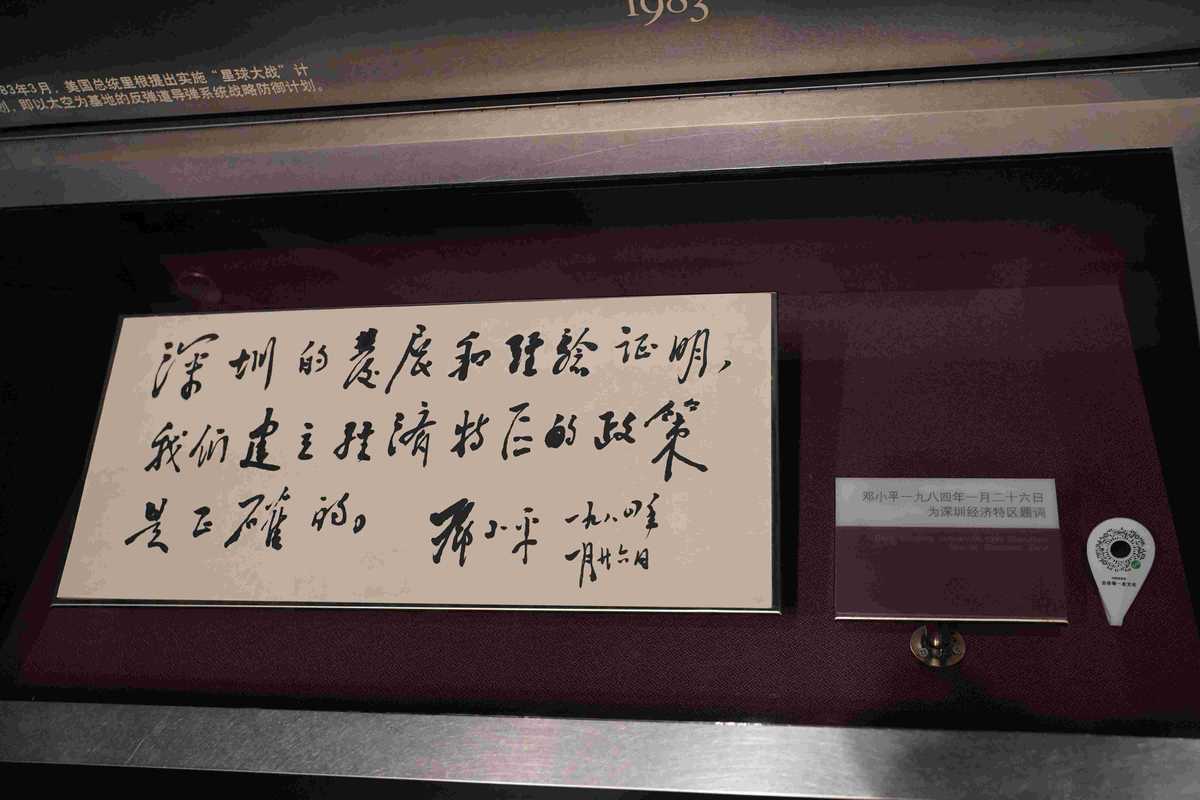 1983
83年3月，美国总统里根提出实施“星球大战”计
划，即以太空为基地的反弹道导弹系统战略防御计划。
深圳的發展和經驗证明，
我们建立經济特区的政策
是正確的。
邓小平
一九八四年
一月廿六日
邓小平一九八四年一月二十六日
为深圳经济特区题词